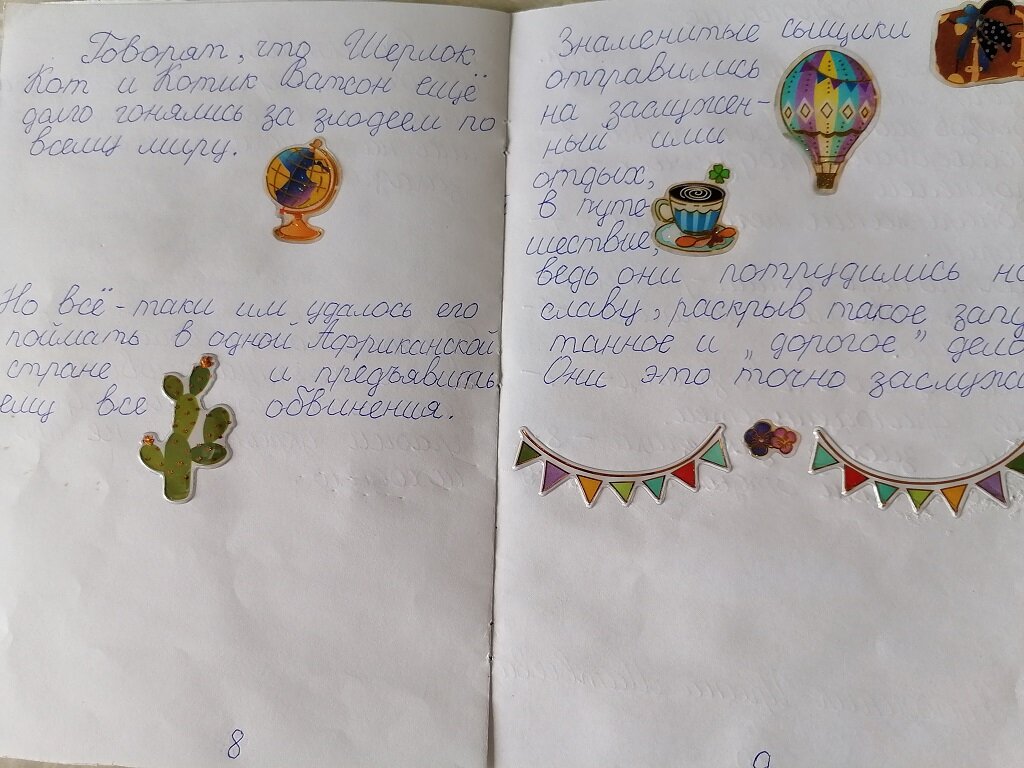 Говорят, что Шерлок
Кот и Котик Ватсон ещё
долго гонялись за злодеем по
всему миру.
Но всё-таки им удалось его
поймать в одной Африканской
стране и предъявить
ему все обвинения.
8
Знаменитые сыщики
отправились
на заслужен-
ный ими
отдых,
в путе-
шествие,
ведь они потрудились на
славу, раскрыв такое запу
танное и „дорогое" дело
Они это точно заслужи
9